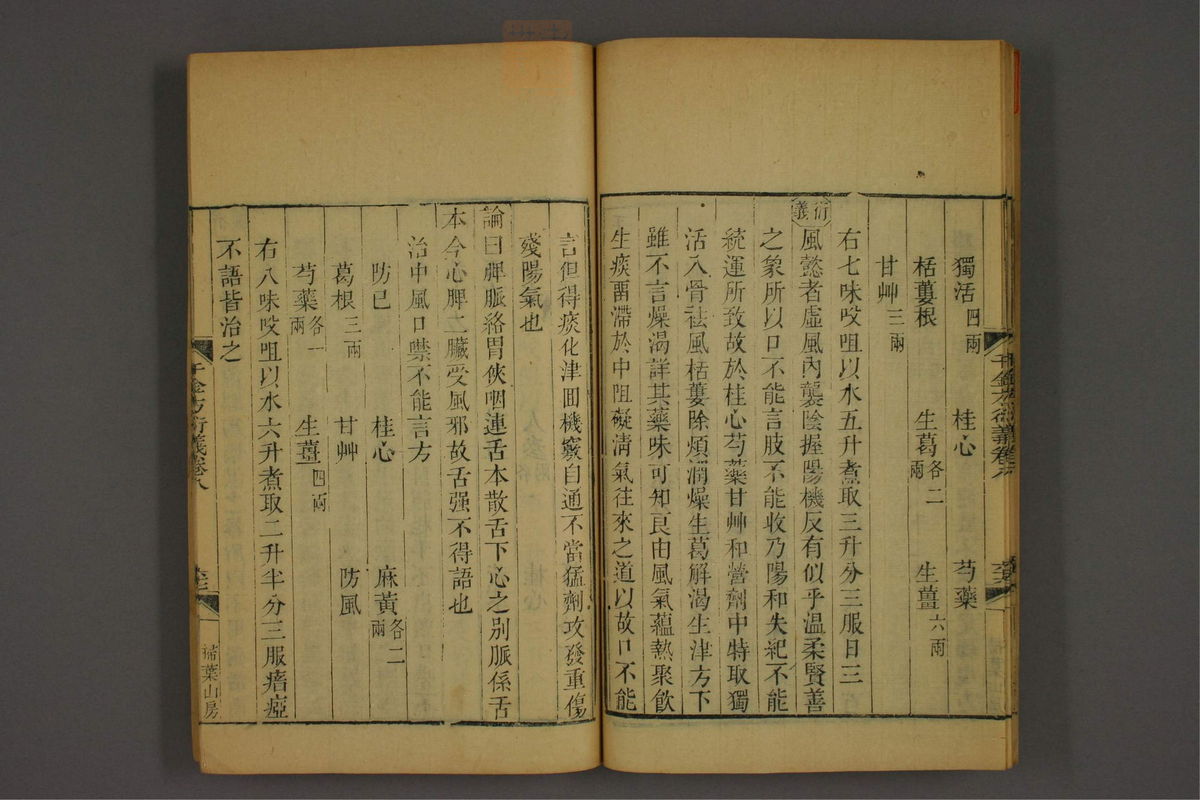 獨活四兩 桂心 芍藥
栝蔞根 生葛各二兩 生薑六兩
甘艸三兩
右七味㕮咀以水五升煮取三升分三服日三
衍義
風懿者虛風內襲陰握陽機反有似乎溫柔賢善
之象所以口不能言肢不能收乃陽和失紀不能
統運所致故於桂心芍藥甘艸和營劑中特取獨
活入骨祛風栝蔞除煩潤燥生葛解渴生津方下
雖不言燥渴詳其藥味可知良由風氣蘊熱聚飲
生痰畱滯於中阻礙淸氣往來之道以故口不能
言但得痰化津回機竅自通不當猛劑攻發重傷
殘陽氣也
論曰脾脈絡胃俠咽連舌本散舌下心之別脈係舌
本今心脾二臟受風邪故舌强不得語也
治中風口噤不能言方
防已 桂心 麻黃各二兩
葛根三兩 甘艸 防風
芍藥各一兩 生薑四兩
右八味㕮咀以水六升煮取二升半分三服瘖瘂
不語皆治之
千金方衍義卷八
掃葉山房